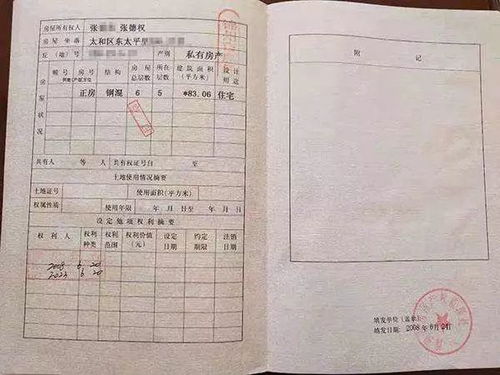 房屋所有权人 张 张德权
房屋坐落 太和区东太平里
丘（地）号 产别 私有房产
幢号 房号 结构 房屋总层数 所在层数 建筑面积（平方米） 设计用途
房屋状况
正房 钢混 6 5 *83.06 住宅
共有人 等 人 共有权证号自 至
土地使用情况摘要
土地证号 使用面积（平方米）
权属性质 使用年限 年 月 日至 年 月 日
设定他项权利摘要
权利人 权利种类 权利范围 权利价值（元） 设定日期 约定期限 注销日期
2008 6 20
6 20
附记
填发单位（盖章）
填发日期：2008年6月